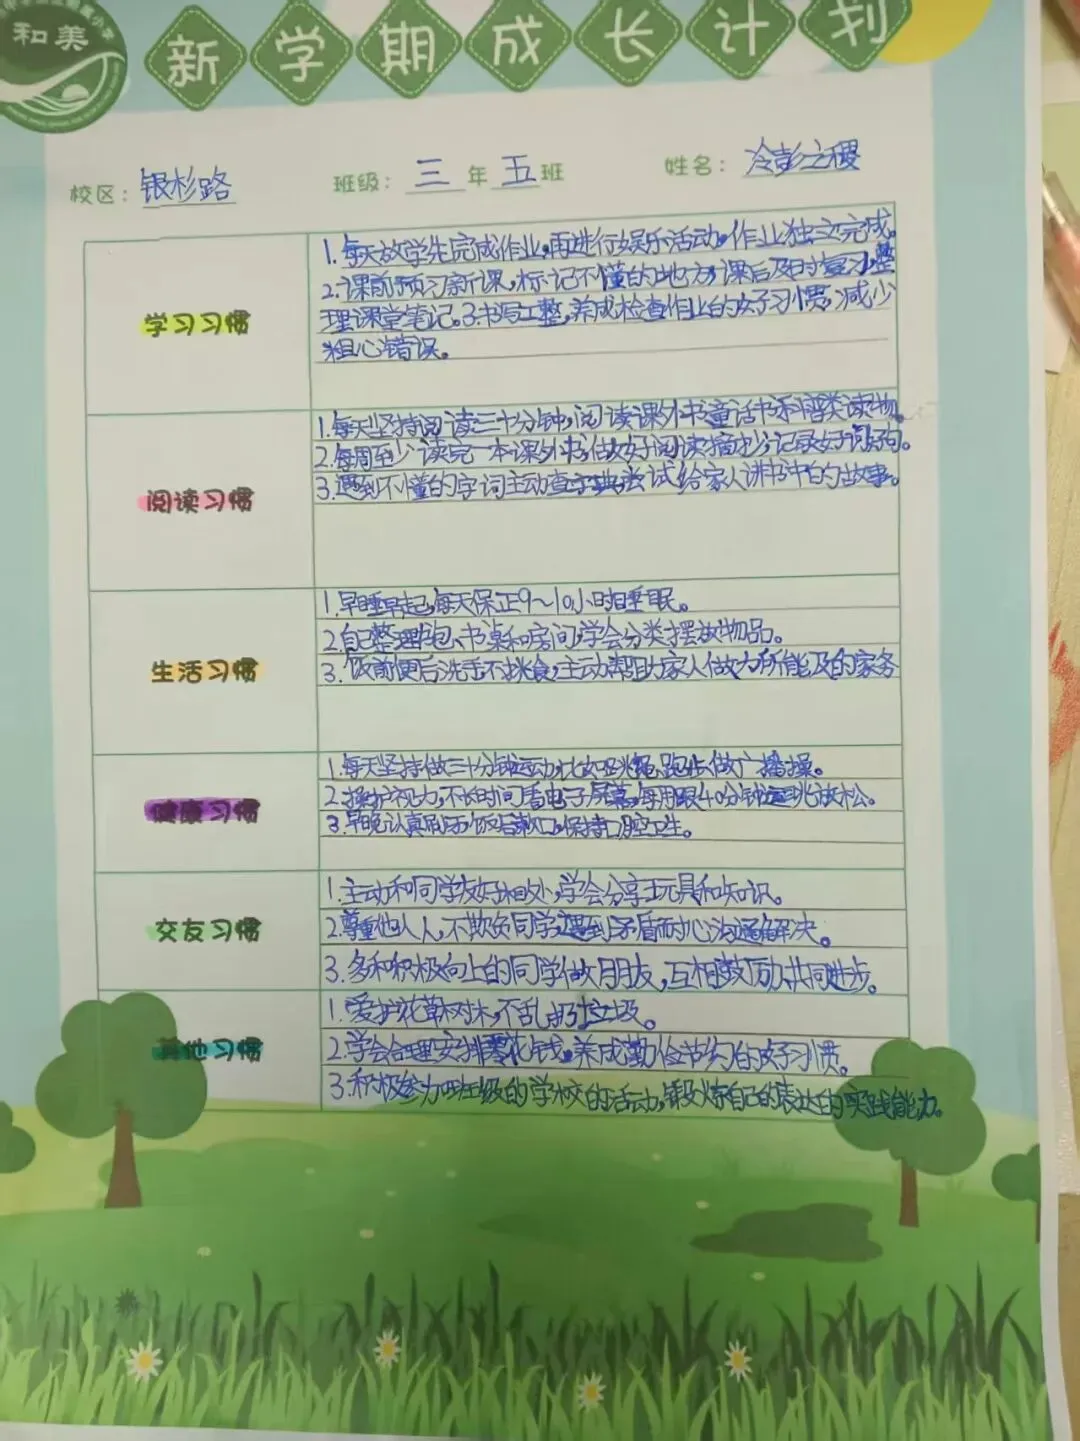 和美
新学期成长计划
校区：银杉路 班级：三年五班 姓名：冷彭之稷
学习习惯
1.每天放学先完成作业，再进行娱乐活动，作业独立完成。
2.课前预习新课，标记不懂的地方，课后及时复习，整
理课堂笔记。3.书写工整，养成检查作业的好习惯，减少
粗心错误。
阅读习惯
1.每天坚持阅读三十分钟，阅读课外书童话书和谱类读物。
2.每周至少读完一本课外书，做好阅读摘抄，记录好词好句。
3.遇到不懂的字词主动查字典，尝试给家人讲书中的故事。
生活习惯
1.早睡早起，每天保正9～10小时睡眠。
2.自己整理书包、书桌和房间，学会分类摆放物品。
3.饭前便后洗手不挑食，主动帮助家人做力所能及的家务
健康习惯
1.每天坚持做三十分钟运动，比如跳绳、跑步、做广播操。
2.保护视力，不长时间看电子屏幕，每用眼40分钟远眺放松。
3.早晚认真刷牙，饭后漱口，保持口腔卫生。
交友习惯
1.主动和同学友好相处，学会分享玩具和知识。
2.尊重他人，不欺负同学，遇到矛盾耐心沟通解决。
3.多和积极向上的同学做朋友，互相鼓励，共同进步。
其他习惯
1.爱护花草树木，不乱扔垃圾。
2.学会合理安排零花钱，养成勤俭节约的好习惯。
3.积极参加班级的学校的活动，锻炼自己的表达的实践能力。